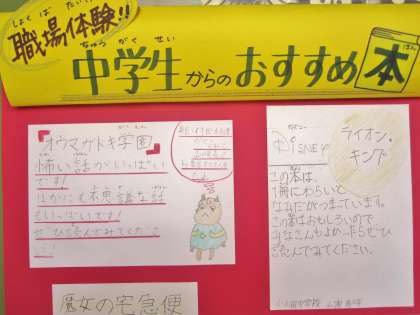 職場体験!!
しょくばたいけん
中学生からのおすすめ本
ちゅうがくせい
ほん
『オウマガトキ学園』
がくえん
怖い話がいっぱい
です!
ほかにも不思議な話
もいっぱいです!
ぜひ読んでみてくださ
い!
Disney
ライオン・
キング
この本は、
1冊にわらいと
なみだがつまっています。
この本はおもしろいので
みなさんもよかったらぜひ
読んでみてください。
魔女の宅急便